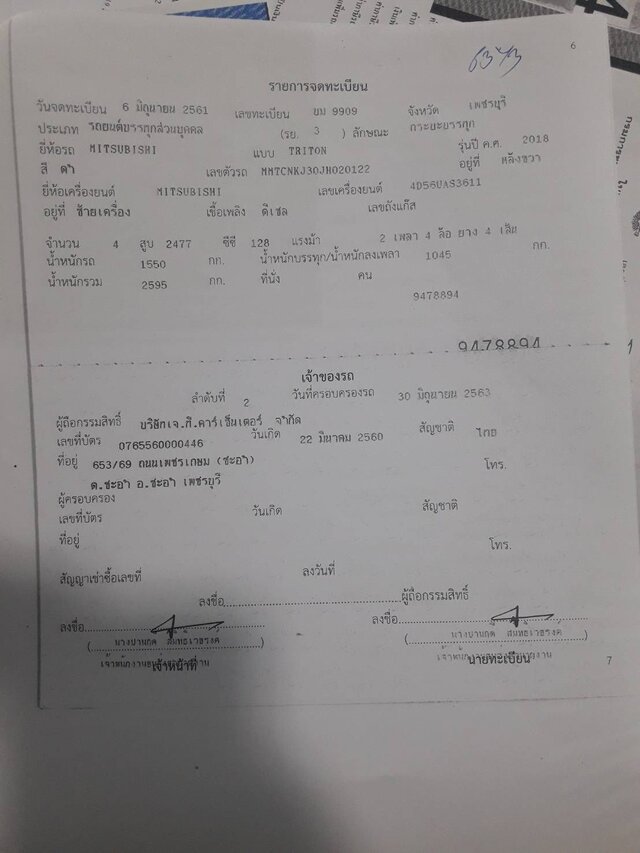 6373
6
รายการจดทะเบียน
วันจดทะเบียน 6 มิถุนายน 2561 เลขทะเบียน ขม 9909 จังหวัด เพชรบุรี
ประเภท รถยนต์บรรทุกส่วนบุคคล (รย. 3 ) ลักษณะ กระบะบรรทุก
ยี่ห้อรถ MITSUBISHI แบบ TRITON รุ่นปี ค.ศ. 2018
สี ดำ เลขตัวรถ MMTCNKJ30JH020122 อยู่ที่ หลังขวา
ยี่ห้อเครื่องยนต์ MITSUBISHI เลขเครื่องยนต์ 4D56UAS3611
อยู่ที่ ซ้ายเครื่อง เชื้อเพลิง ดีเซล เลขถังแก๊ส
จำนวน 4 สูบ 2477 ซีซี 128 แรงม้า 2 เพลา 4 ล้อ ยาง 4 เส้น
น้ำหนักรถ 1550 กก. น้ำหนักบรรทุก/น้ำหนักลงเพลา 1045 กก.
น้ำหนักรวม 2595 กก. ที่นั่ง คน
9478894
9478894
1
เจ้าของรถ
ลำดับที่ 2 วันที่ครอบครองรถ 30 มิถุนายน 2563
ผู้ถือกรรมสิทธิ์ บริษัทเจ.กี.คาร์เซ็นเตอร์ จำกัด
เลขที่บัตร 0765560000446 วันเกิด 22 มีนาคม 2560 สัญชาติ ไทย
ที่อยู่ 653/69 ถนนเพชรเกษม (ชะอำ) โทร.
ต.ชะอำ อ.ชะอำ เพชรบุรี
ผู้ครอบครอง
เลขที่บัตร วันเกิด สัญชาติ
ที่อยู่ โทร.
สัญญาเช่าซื้อเลขที่ ลงวันที่
ลงชื่อ ผู้ถือกรรมสิทธิ์
ลงชื่อ ลงชื่อ
เจ้าหน้าที่ นายทะเบียน
7